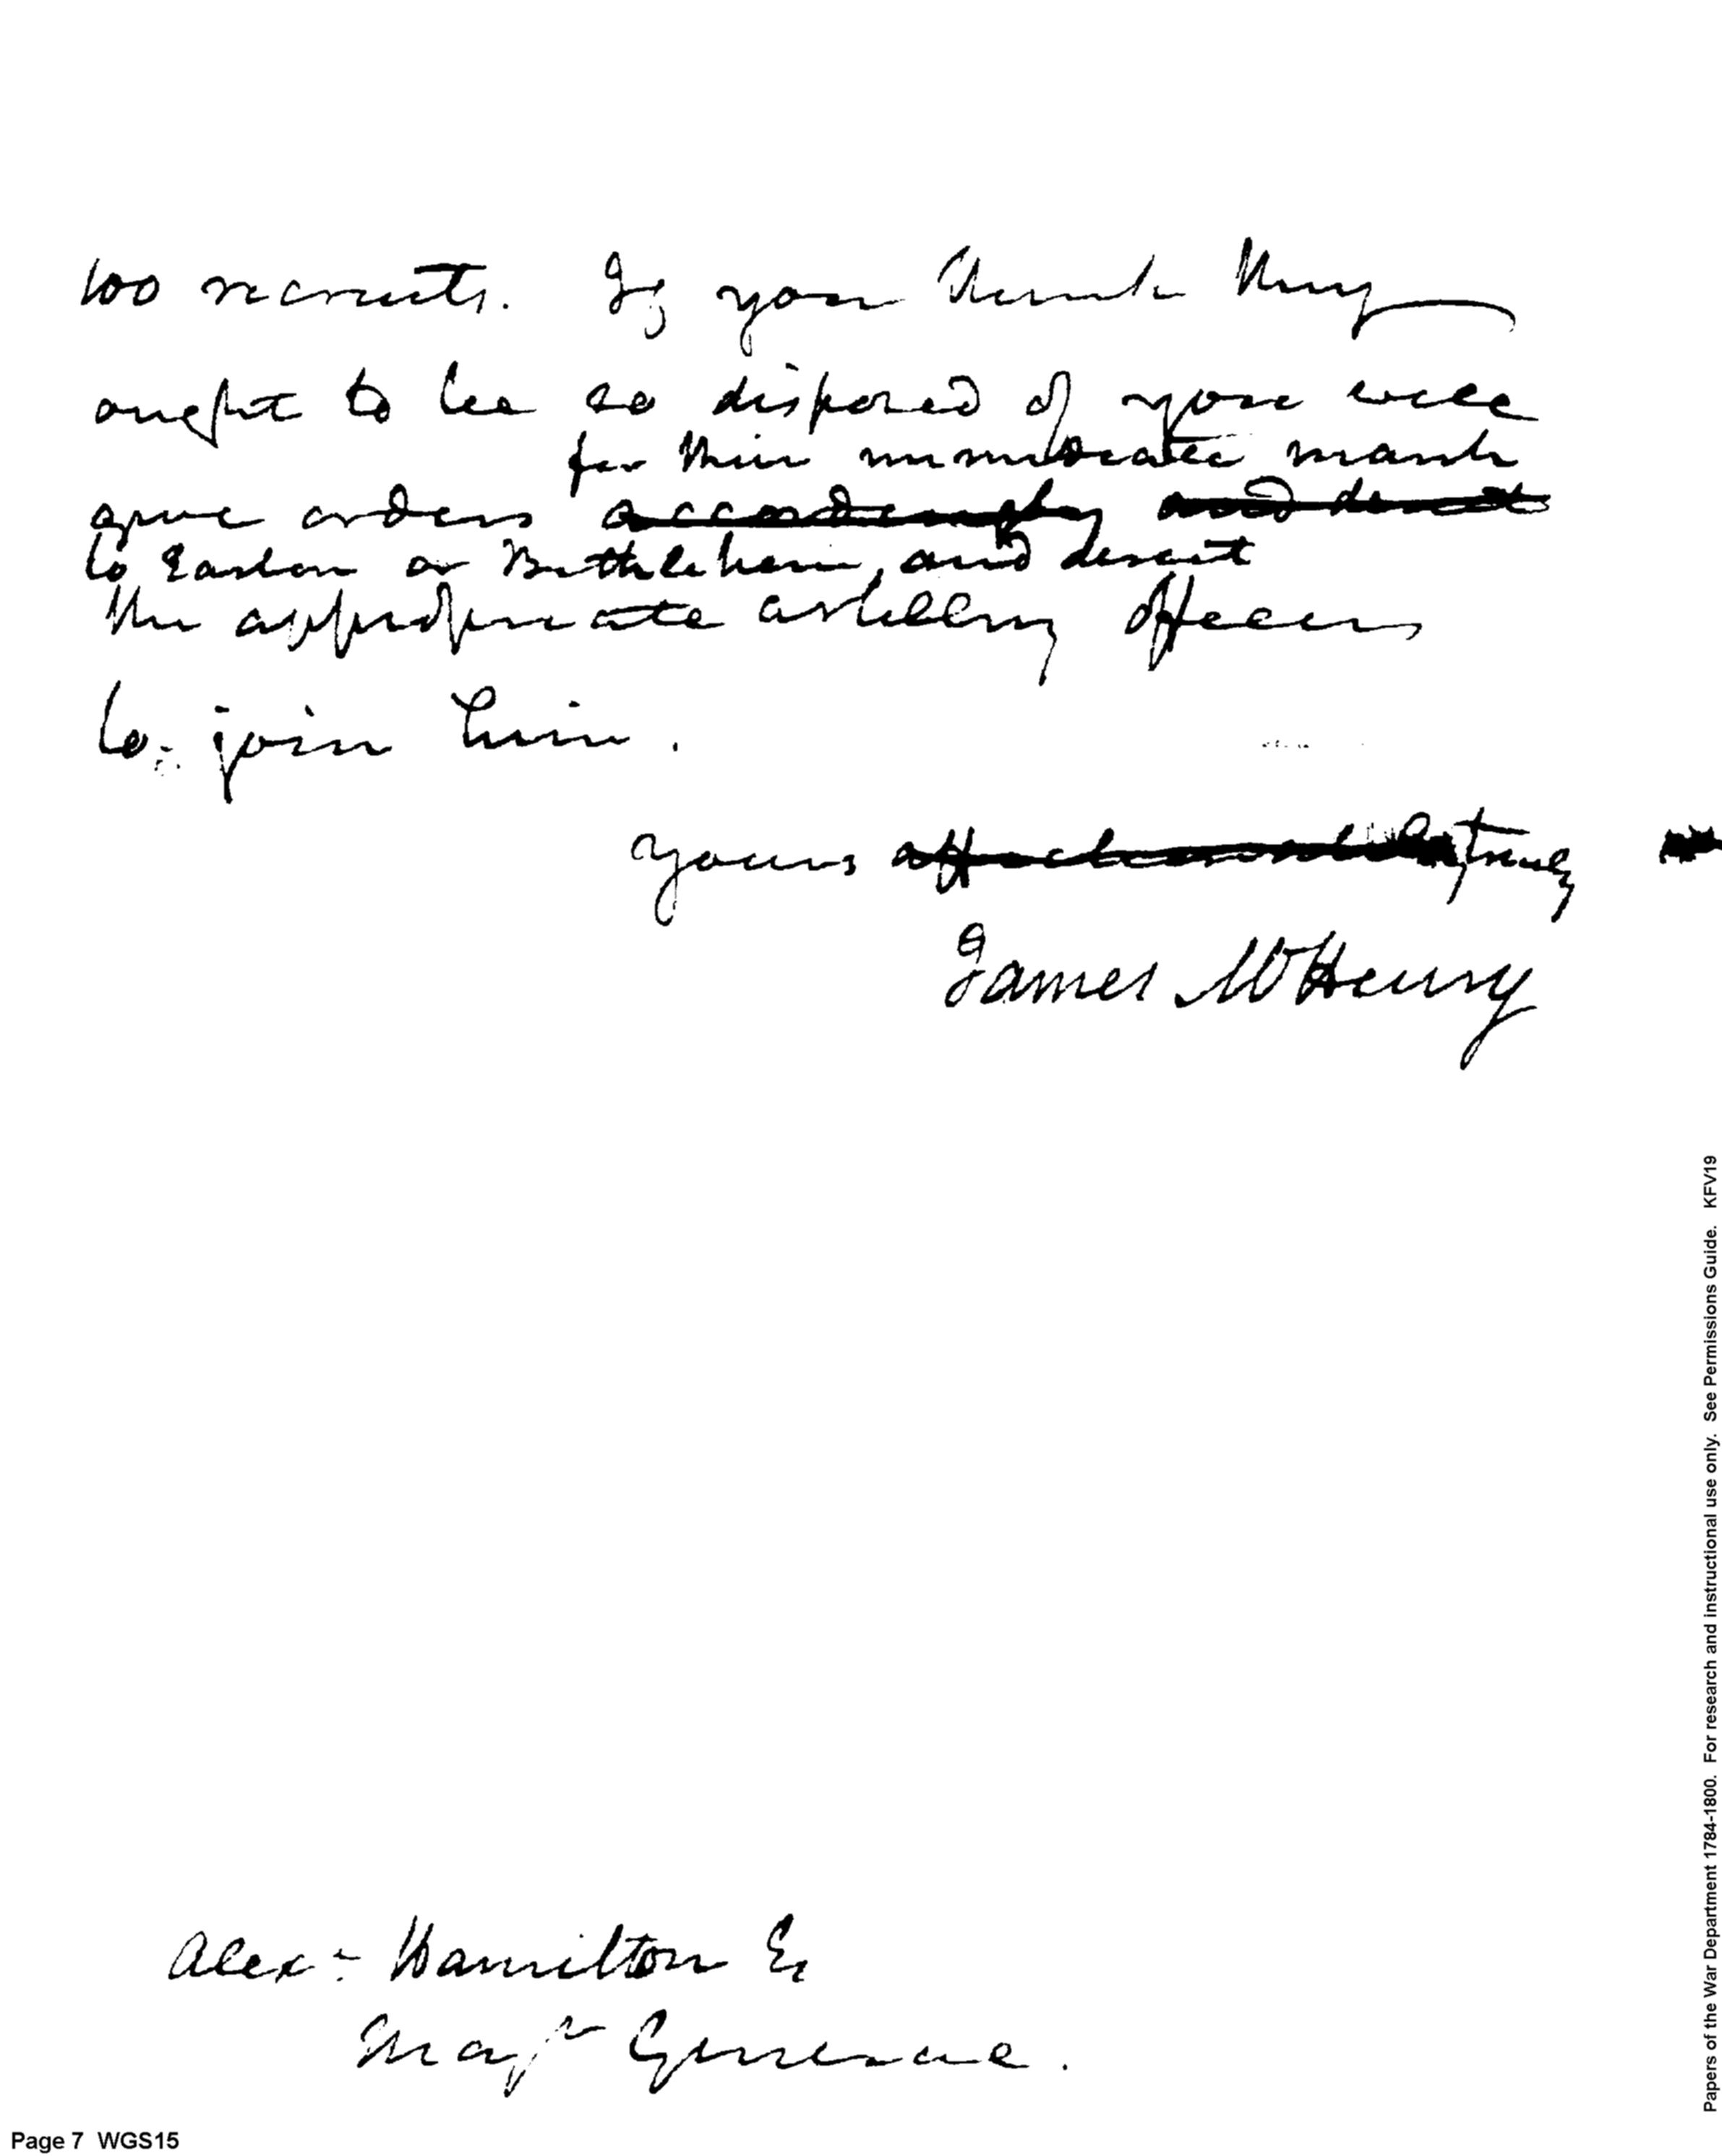 100 recruits. If you think they
ought to be so disposed of you will
for their immediate march
give orders accordingly and direct
to Easton or Bethlehem, and direct
the appropriate artillery officers
to join him.
Yours affectionately truly
James McHenry
Alex: Hamilton Es
Majr General.
Page 7 WGS15
Papers of the War Department 1784-1800. For research and instructional use only. See Permissions Guide. KFV19